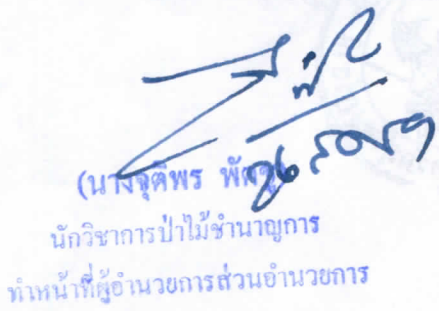 (นางจุติพร
นักวิชาการป่าไม้ชำนาญการ
ทำหน้าที่ผู้อำนวยการส่วนอำนวยการ